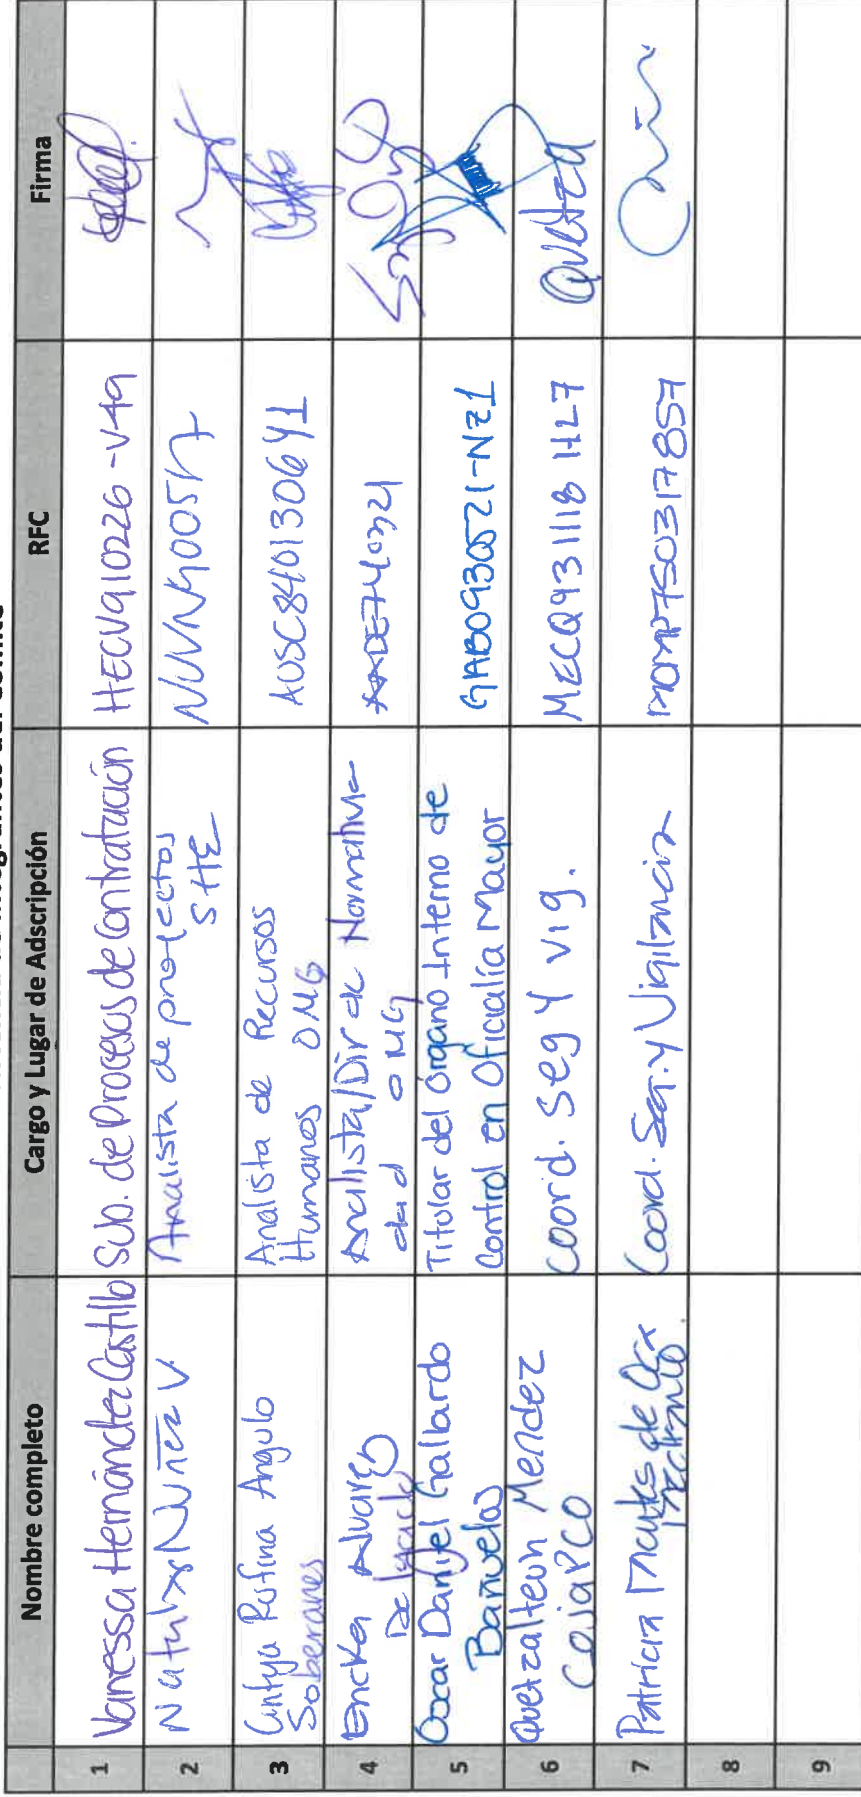 Nombre completo Cargo y Lugar de Adscripción RFC Firma
1 Vanessa Hernández Castillo Sub. de Procesos de Contratación HECV910226-V49
2 Nuñez V. Analista de proyectos
SHE
3 Rufina Angulo
Soberanes Analista de Recursos
Humanos OMG AUSC8401306Y1
4 Ericka Alvarez
Delgado Analista/Dir de Normativi-
dad OMG
5 Oscar Daniel Gallardo
Bañuelos Titular del Órgano Interno de
Control en Oficialía Mayor GABO930521-NZ1
6 Quetzalteon Mendez
Cojapco coord. seg y vig. MECQ931118 HL7 Quetza
7 Patricia Montes de Oca Coord. Seg. y Vigilancia MOMP750317857
8
9